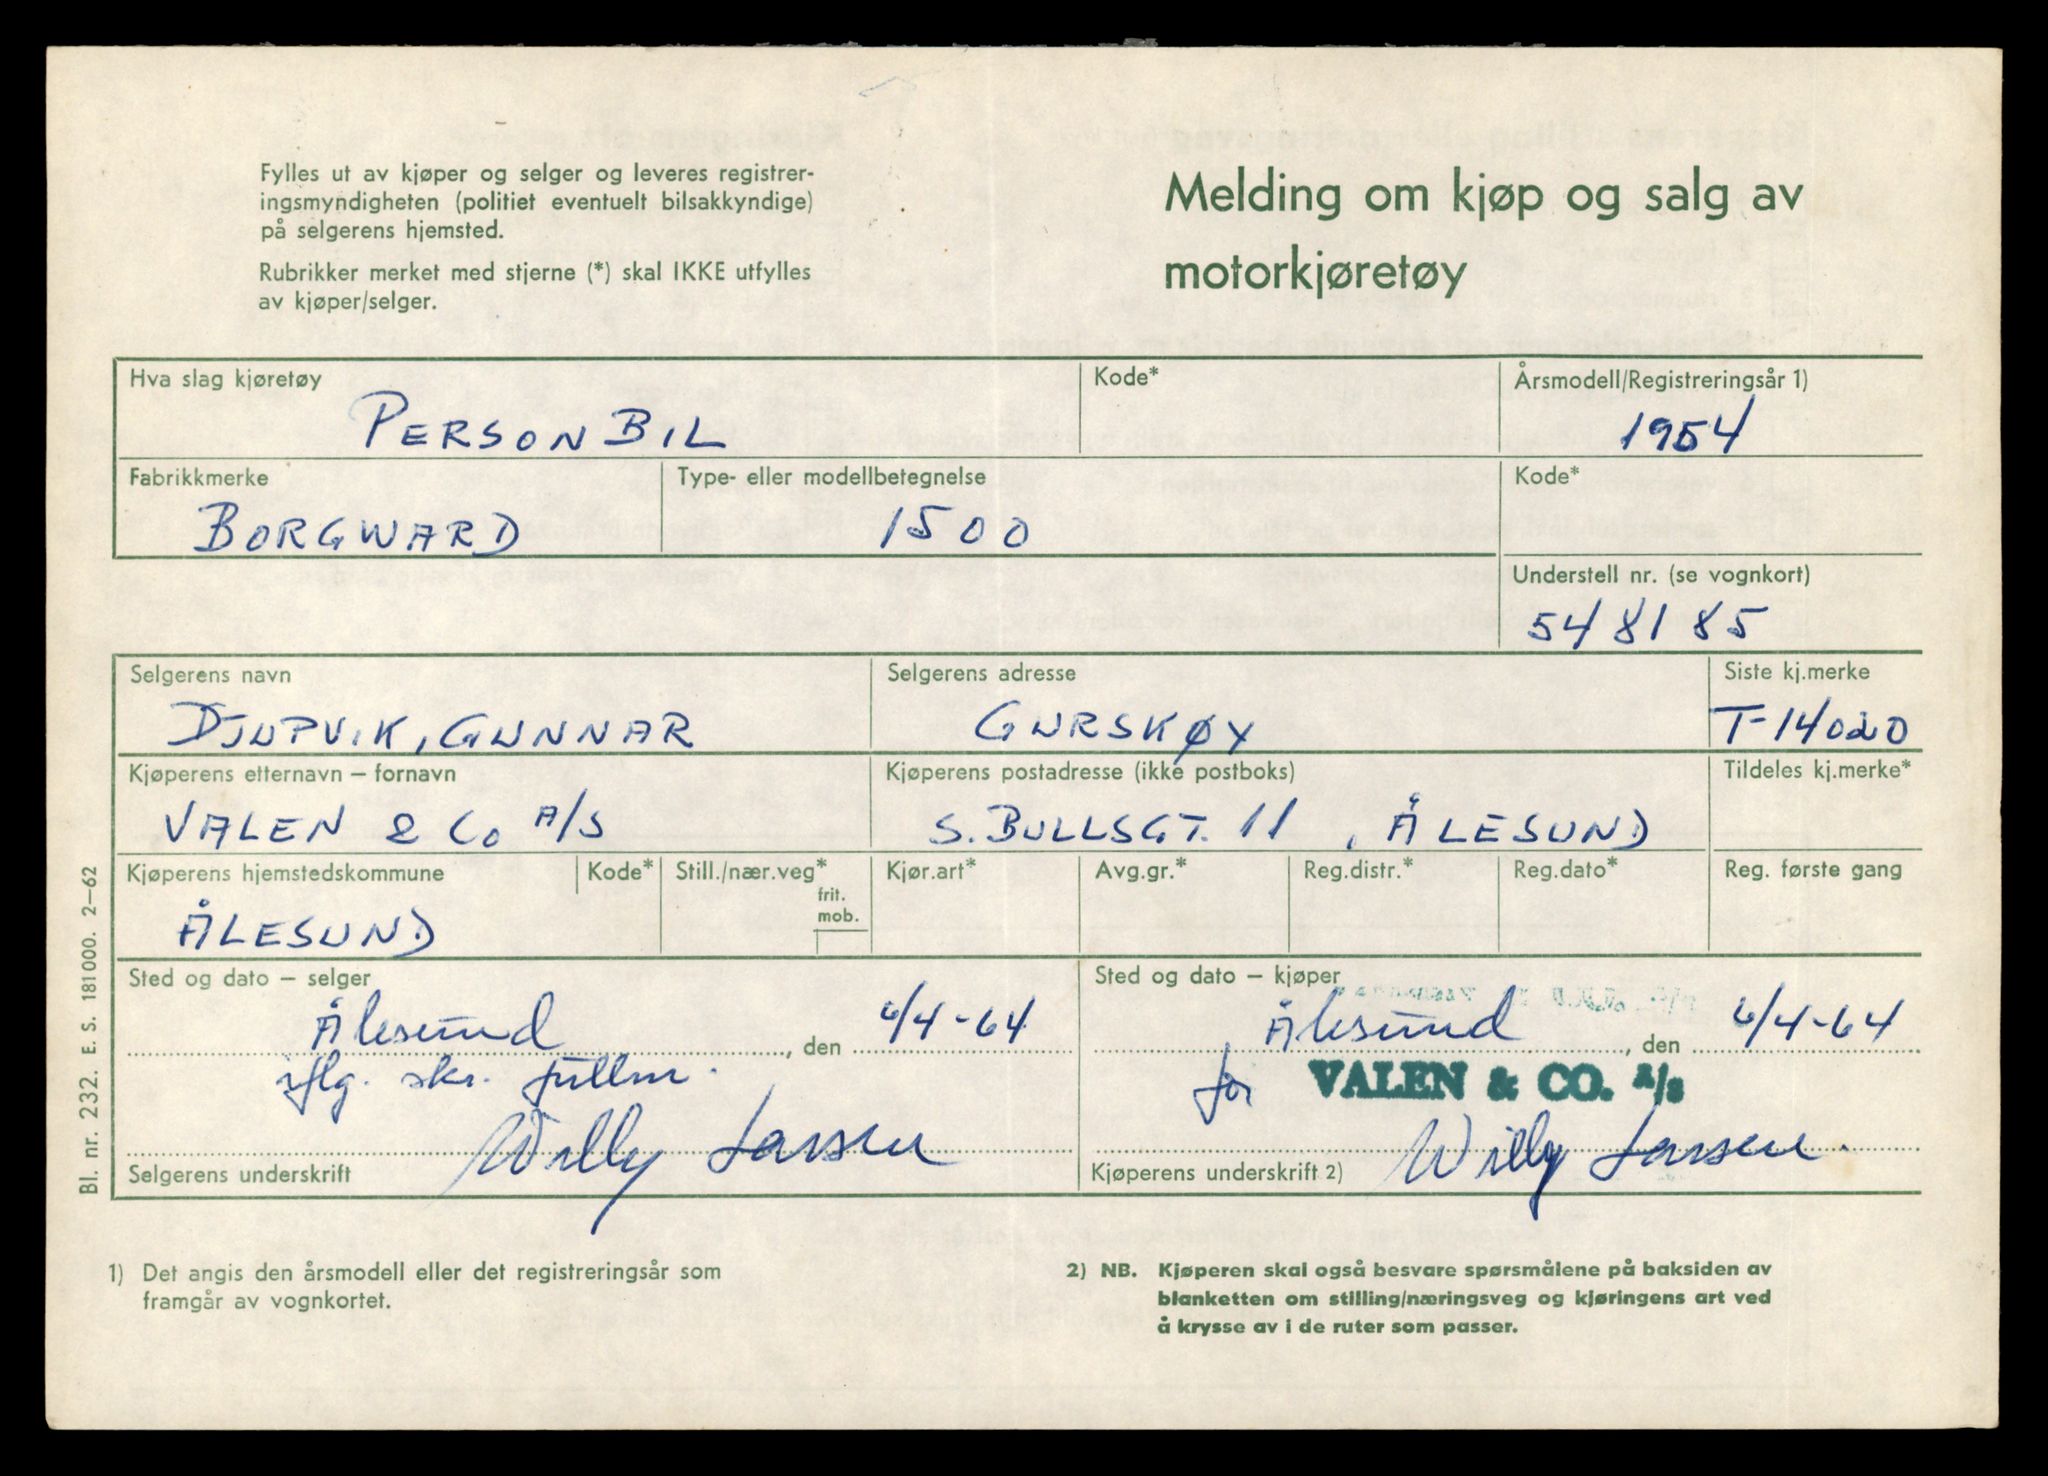 Fylles ut av kjøper og selger og leveres registrer-
ingsmyndigheten (politiet eventuelt bilsakkyndige)
på selgerens hjemsted.
Rubrikker merket med stjerne (*) skal IKKE utfylles
av kjøper/selger.
Melding om kjøp og salg av
motorkjøretøy
Hva slag kjøretøy
Kode*
Årsmodell/Registreringsår 1)
PERSONBIL
1954
Fabrikkmerke
Type- eller modellbetegnelse
Kode*
BORGWARD
1500
Understell nr. (se vognkort)
548185
Selgerens navn
Selgerens adresse
Siste kj.merke
DJUPVIK, GUNNAR
GURSKØY
T-14020
Kjøperens etternavn – fornavn
Kjøperens postadresse (ikke postboks)
Tildeles kj.merke*
VALEN & Co A/S
S. BULLSGT. 11, ÅLESUND
Kjøperens hjemstedskommune
Kode*
Still./nær.veg*
frit.
mob.
Kjør.art*
Avg.gr.*
Reg.distr.*
Reg.dato*
Reg. første gang
ÅLESUND
Sted og dato – selger
Sted og dato – kjøper
Ålesund, den 6/4-64
Ålesund, den 6/4-64
iflg. skr. fullm.
for VALEN & CO. A/S
Selgerens underskrift Willy Larsen
Kjøperens underskrift 2) Willy Larsen.
Bl. nr. 232. E. S. 181000. 2–62
1) Det angis den årsmodell eller det registreringsår som
framgår av vognkortet.
2) NB. Kjøperen skal også besvare spørsmålene på baksiden av
blanketten om stilling/næringsveg og kjøringens art ved
å krysse av i de ruter som passer.